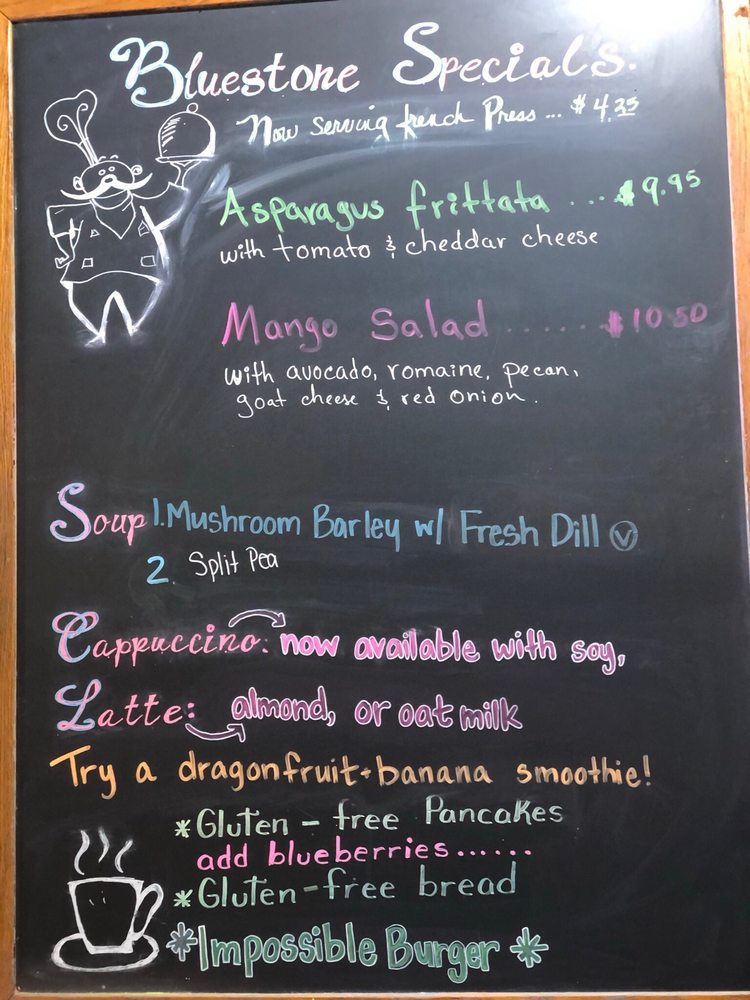 Bluestone Specials:
Now serving french Press ... $4.25
Asparagus frittata ... $9.95
with tomato & cheddar cheese
Mango Salad ...... $10.50
with avocado, romaine, pecan,
goat cheese & red onion.
Soup 1. Mushroom Barley w/ Fresh Dill Ⓥ
2. Split Pea
Cappuccino: now available with soy,
Latte: almond, or oat milk
Try a dragonfruit+banana smoothie!
*Gluten-free Pancakes
add blueberries......
*Gluten-free bread
*Impossible Burger*